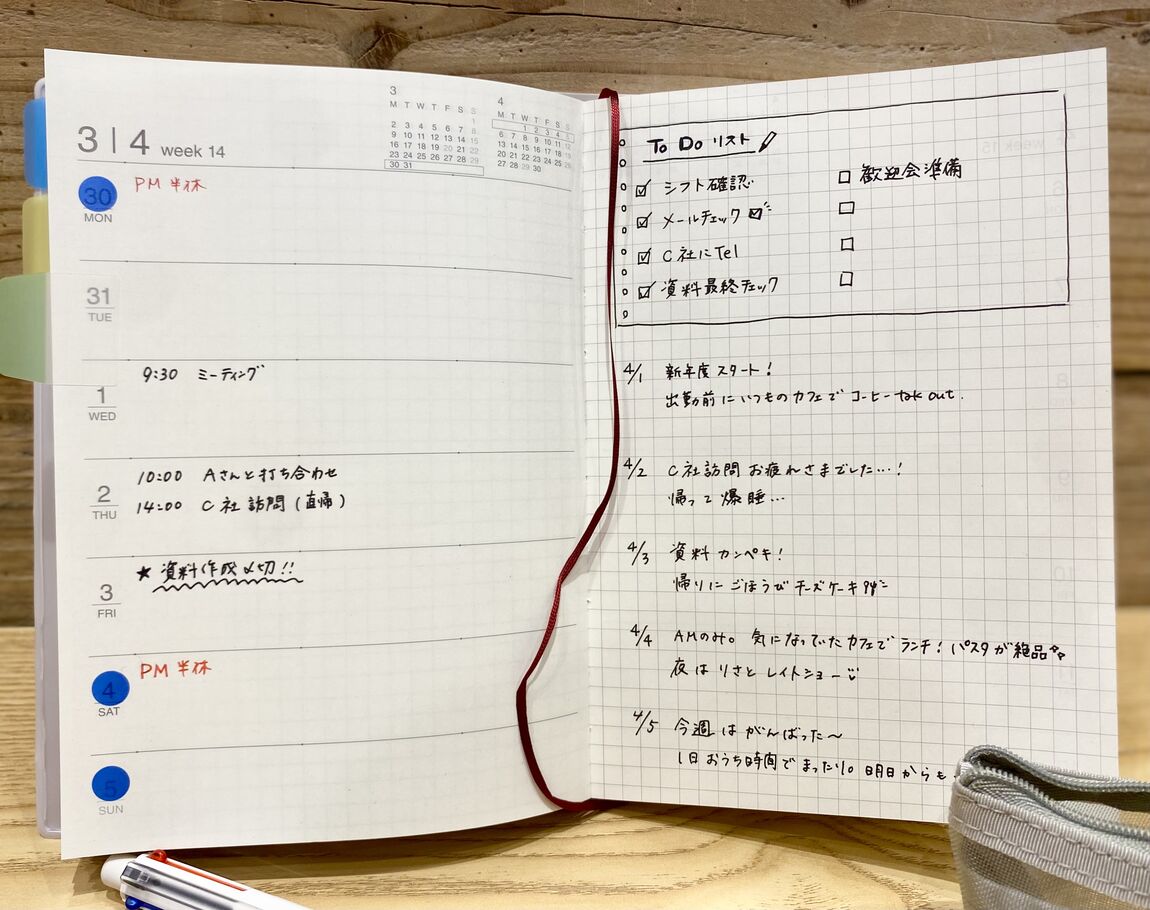 3 | 4 week 14
3
M T W T F S S
1
2 3 4 5 6 7 8
9 10 11 12 13 14 15
16 17 18 19 20 21 22
23 24 25 26 27 28 29
30 31
4
M T W T F S S
1 2 3 4 5
6 7 8 9 10 11 12
13 14 15 16 17 18 19
20 21 22 23 24 25 26
27 28 29 30
30
MON
PM 半休
31
TUE
1
WED
9:30 ミーティング
2
THU
10:00 Aさんと打ち合わせ
14:00 C社訪問(直帰)
3
FRI
★ 資料作成〆切!!
4
SAT
PM 半休
5
SUN
To Do リスト
シフト確認
メールチェック
C社にTel
資料最終チェック
歓迎会準備
4/1 新年度スタート!
出勤前にいつものカフェでコーヒー tak out.
4/2 C社訪問お疲れさまでした…!
帰って爆睡…
4/3 資料カンペキ!
帰りにごほうびチーズケーキ
4/4 AMのみ。気になっていたカフェでランチ!パスタが絶品
夜はりさとレイトショー
4/5 今週はがんばった〜
1日おうち時間でまったり。明日からも